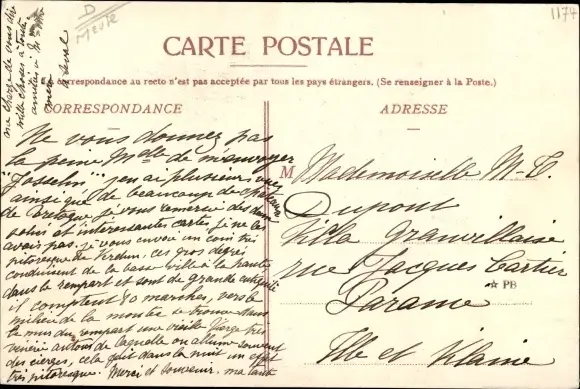 me charge de vous dire
mille choses à toute
amitiés à M
D
Meute
1174
CARTE POSTALE
La correspondance au recto n'est pas acceptée par tous les pays étrangers. (Se renseigner à la Poste.)
CORRESPONDANCE
Ne vous donnez pas
la peine Mlle de m'envoyer
"Josselin", j'en ai plusieurs vues
ainsi que de beaucoup de châteaux
de Bretagne je vous remercie des deux
jolies et intéressantes cartes, je ne les
avais pas. je vous envoie un coin très
pittoresque de Verdun. ces gros degrés
conduisent de la basse ville à la haute
dans le rempart et sont de grande antiquité
il comptent 80 marches, vers le
milieu de la montée se trouve dans
le mur du rempart une vieille Vierge très
vénérée autour de laquelle on allume souvent
des cierges, cela fait dans la nuit un effet
très pittoresque. Merci et souvenir. ma tante
ADRESSE
M Mademoiselle M-T.
Dupont
Villa Granvillaise
rue Jacques Cartier
Paramé
PB
Ille et Vilaine